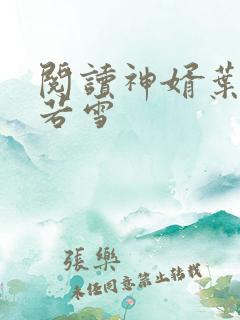 閱讀神婿葉
若雪
張樂
未經同意禁止轉載